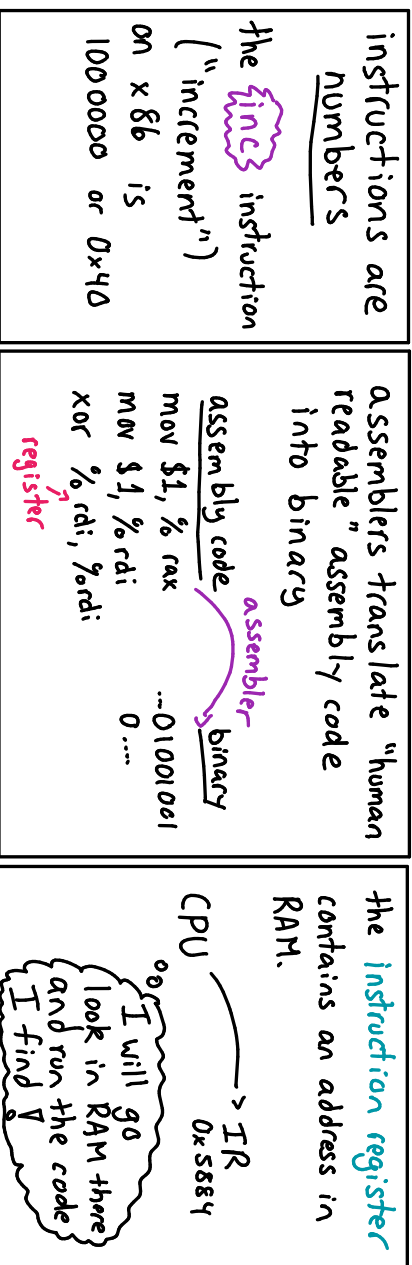 instructions are
numbers
the inc instruction
("increment")
on x86 is
1000000 or 0x40
assemblers translate "human
readable" assembly code
into binary
assembly code
assembler
binary
mov $1, % rax
mov $1, % rdi
xor % rdi, % rdi
register
...01001001
0....
the instruction register
contains an address in
RAM.
CPU
IR
0x5884
I will go
look in RAM there
and run the code
I find!